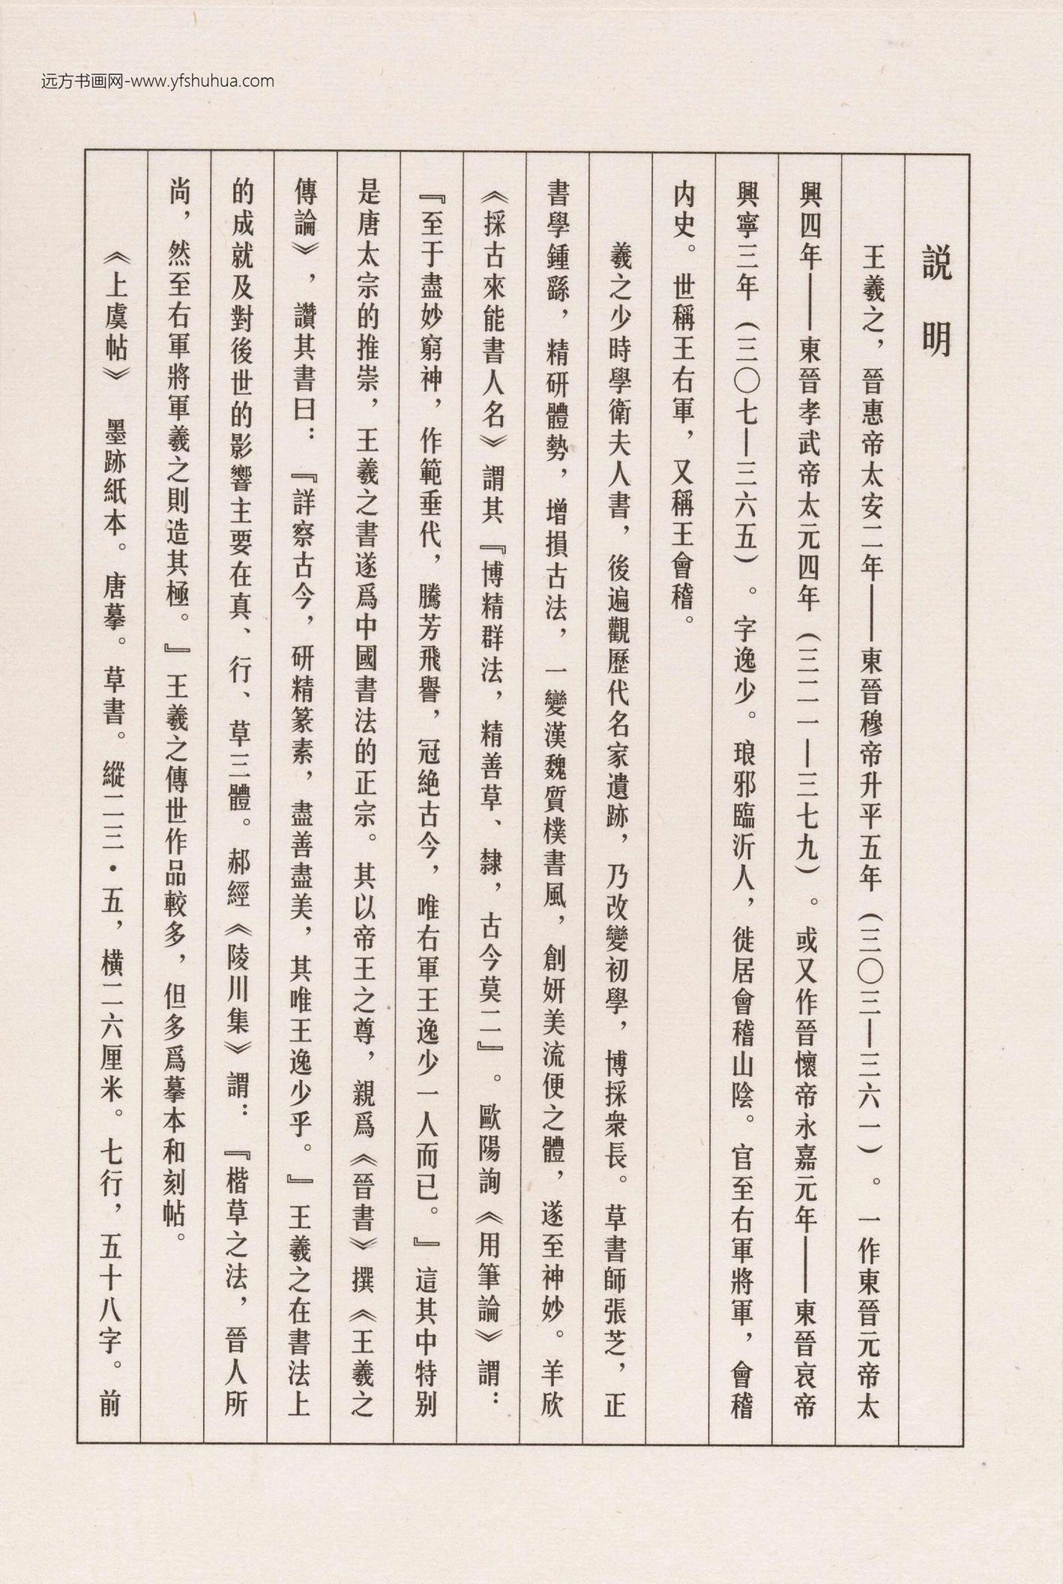 远方书画网-www.yfshuhua.com
説明
王羲之，晉惠帝太安二年——東晉穆帝升平五年（三〇三—三六一）。一作東晉元帝太
興四年——東晉孝武帝太元四年（三二一—三七九）。或又作晉懷帝永嘉元年——東晉哀帝
興寧三年（三〇七—三六五）。字逸少。琅邪臨沂人，徙居會稽山陰。官至右軍將軍，會稽
内史。世稱王右軍，又稱王會稽。
羲之少時學衛夫人書，後遍觀歷代名家遺跡，乃改變初學，博採衆長。草書師張芝，正
書學鍾繇，精研體勢，增損古法，一變漢魏質樸書風，創妍美流便之體，遂至神妙。羊欣
《採古來能書人名》謂其『博精群法，精善草、隸，古今莫二』。歐陽詢《用筆論》謂：
『至于盡妙窮神，作範垂代，騰芳飛譽，冠絶古今，唯右軍王逸少一人而已。』這其中特别
是唐太宗的推崇，王羲之書遂爲中國書法的正宗。其以帝王之尊，親爲《晉書》撰《王羲之
傳論》，讚其書曰：『詳察古今，研精篆素，盡善盡美，其唯王逸少乎。』王羲之在書法上
的成就及對後世的影響主要在真、行、草三體。郝經《陵川集》謂：『楷草之法，晉人所
尚，然至右軍將軍羲之則造其極。』王羲之傳世作品較多，但多爲摹本和刻帖。
《上虞帖》 墨跡紙本。唐摹。草書。縱二三·五，橫二六厘米。七行，五十八字。前